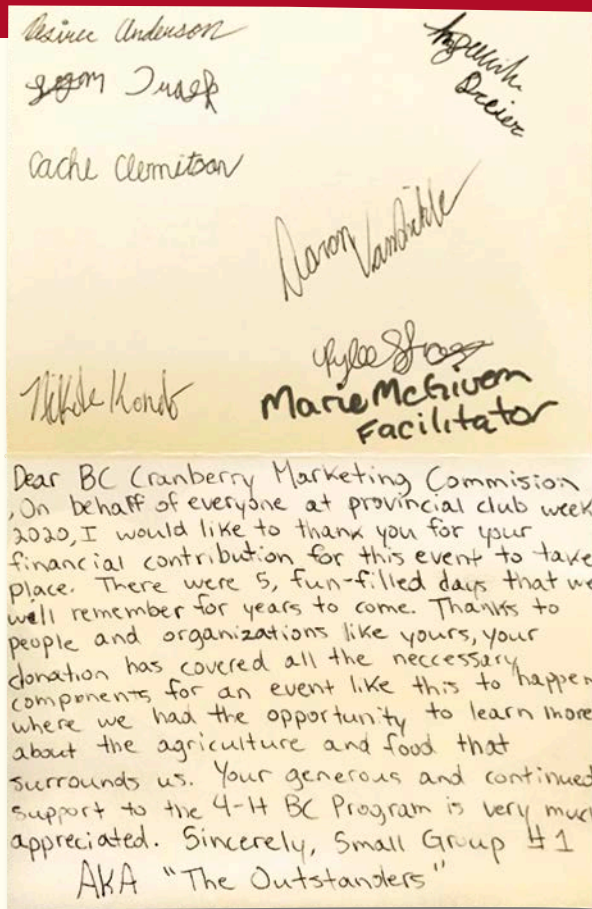 Desiree Anderson
Dreier
Cache Clemitson
Aaron
Nikole Kondo
Marie McGivern
Facilitator
Dear BC Cranberry Marketing Commision
, On behalf of everyone at provincial club week
2020, I would like to thank you for your
financial contribution for this event to take
place. There were 5, fun-filled days that we
will remember for years to come. Thanks to
people and organizations like yours, your
donation has covered all the neccessary
components for an event like this to happen
where we had the opportunity to learn more
about the agriculture and food that
surrounds us. Your generous and continued
support to the 4-H BC Program is very much
appreciated. Sincerely, Small Group #1
AKA "The Outstanders"